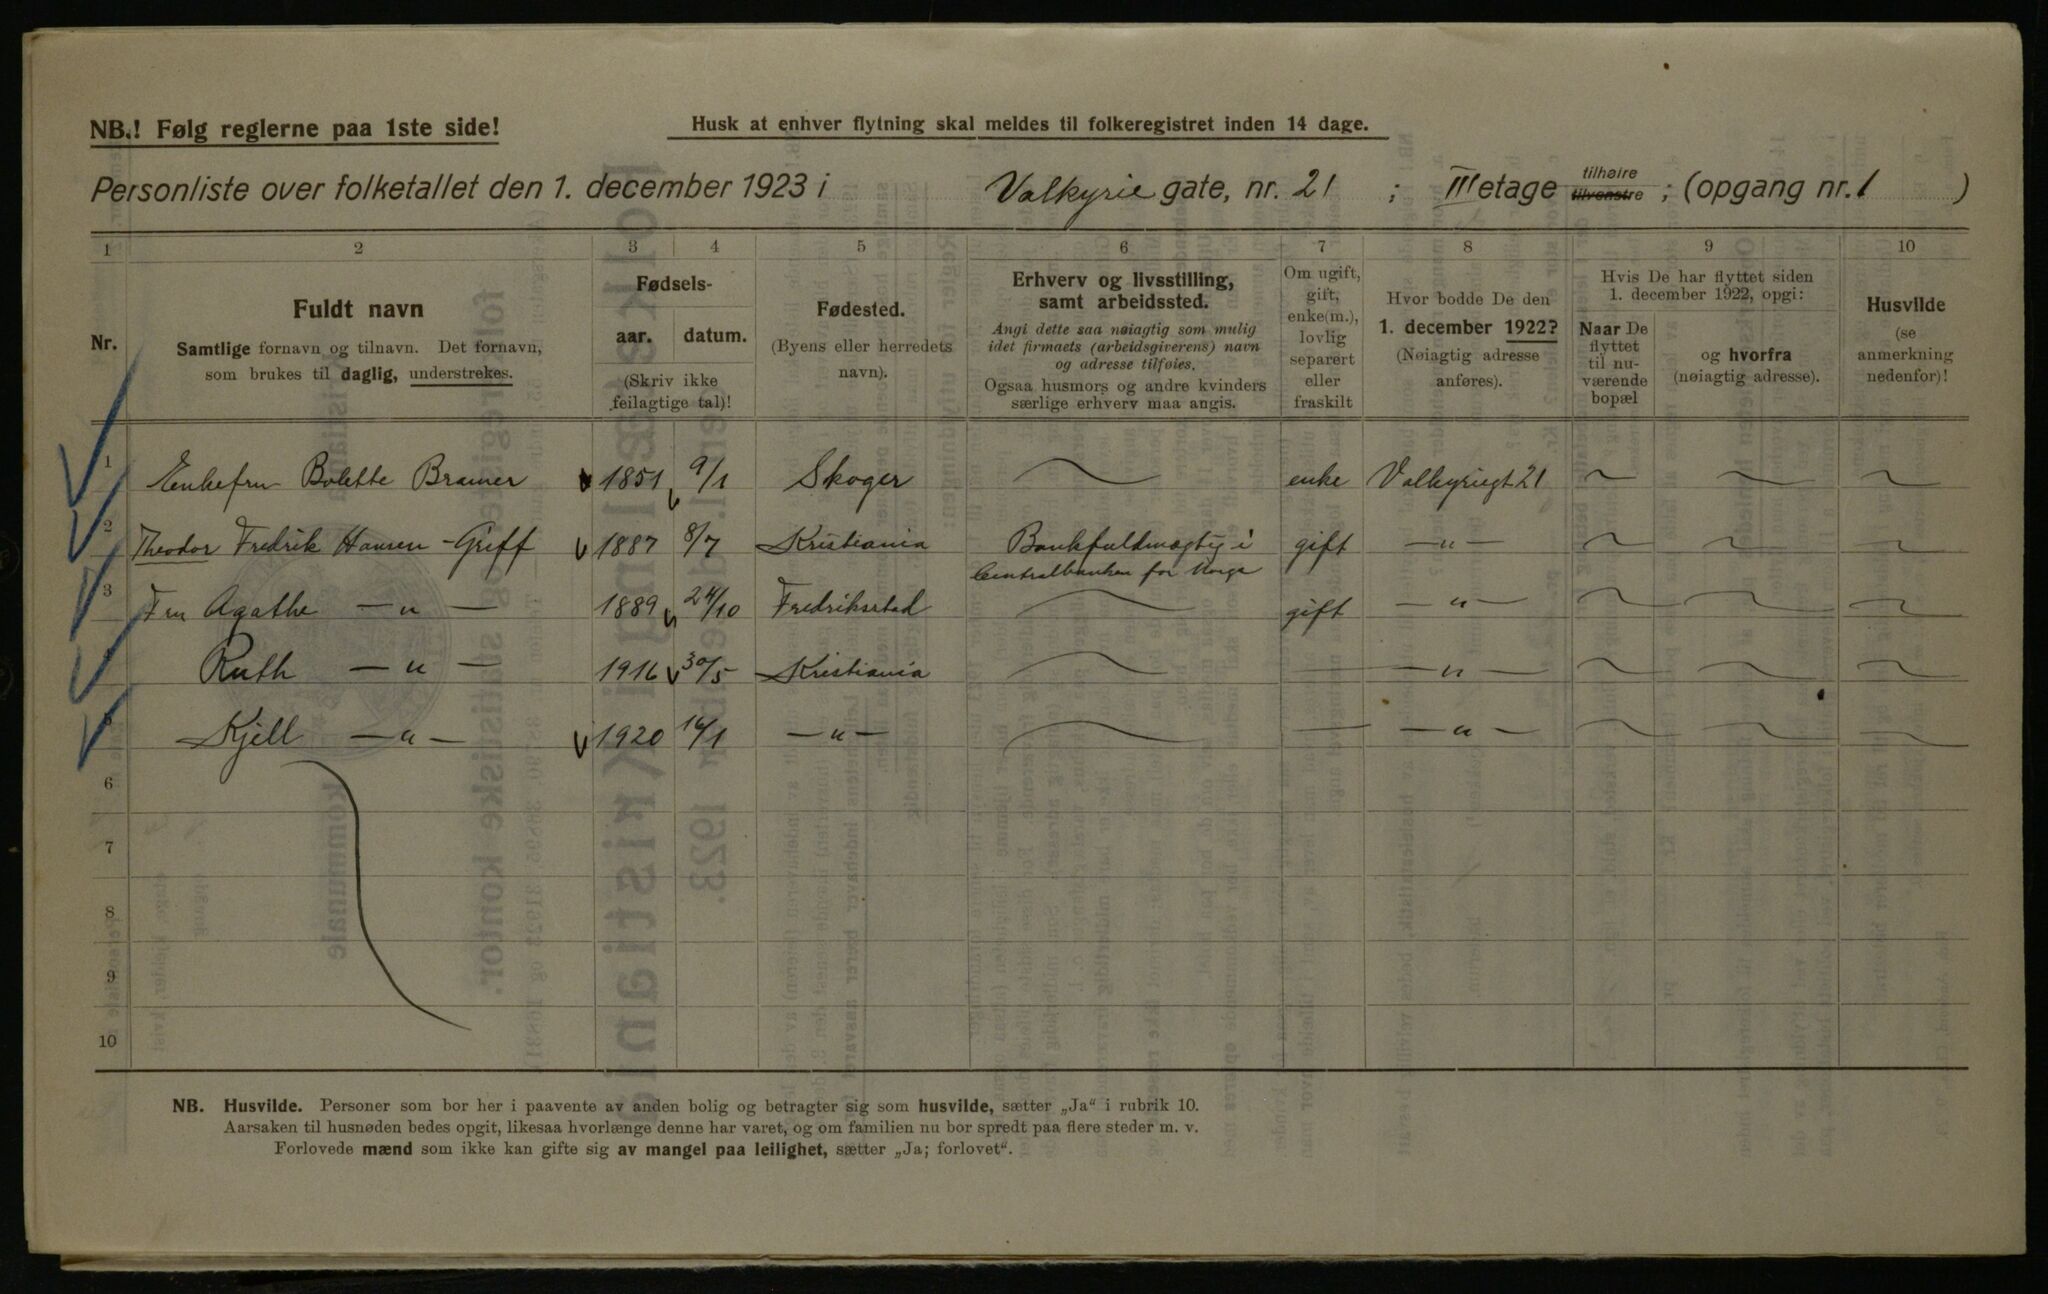 NB.! Følg reglerne paa 1ste side!
Husk at enhver flytning skal meldes til folkeregistret inden 14 dage.
Personliste over folketallet den 1. december 1923 i Valkyrie gate, nr. 21 ; III etage tilhøire tilvenstre ; (opgang nr. 1 )
1 2 3 4 5 6 7 8 9 10
Nr.
Fuldt navn
Samtlige fornavn og tilnavn. Det fornavn,
som brukes til daglig, understrekes.
Fødsels-
aar. datum.
(Skriv ikke
feilagtige tal)!
Fødested.
(Byens eller herredets
navn).
Erhverv og livsstilling,
samt arbeidssted.
Angi dette saa nøiagtig som mulig
idet firmaets (arbeidsgiverens) navn
og adresse tilføies.
Ogsaa husmors og andre kvinders
særlige erhverv maa angis.
Om ugift,
gift,
enke(m.),
lovlig
separert
eller
fraskilt
Hvor bodde De den
1. december 1922?
(Nøiagtig adresse
anføres).
Hvis De har flyttet siden
1. december 1922, opgi:
Naar De
flyttet
til nu-
værende
bopæl
og hvorfra
(nøiagtig adresse).
Husvilde
(se
anmerkning
nedenfor)!
1 Enkefru Bolette Bramer 1851 9/1 Skoger enke Valkyriegt 21
2 Theodor Fredrik Hansen-Greff 1887 8/7 Kristiania Bankfuldmægtig i gift —"—
Centralbanken for Norge
3 Fru Agathe —"— 1889 24/10 Fredriksstad gift —"—
4 Ruth —"— 1916 30/5 Kristiania — —"—
5 Kjell —"— 1920 16/1 —"— — —"—
6
7
8
9
10
NB. Husvilde. Personer som bor her i paavente av anden bolig og betragter sig som husvilde, sætter „Ja" i rubrik 10.
Aarsaken til husnøden bedes opgit, likesaa hvorlænge denne har varet, og om familien nu bor spredt paa flere steder m. v.
Forlovede mænd som ikke kan gifte sig av mangel paa leilighet, sætter „Ja; forlovet".